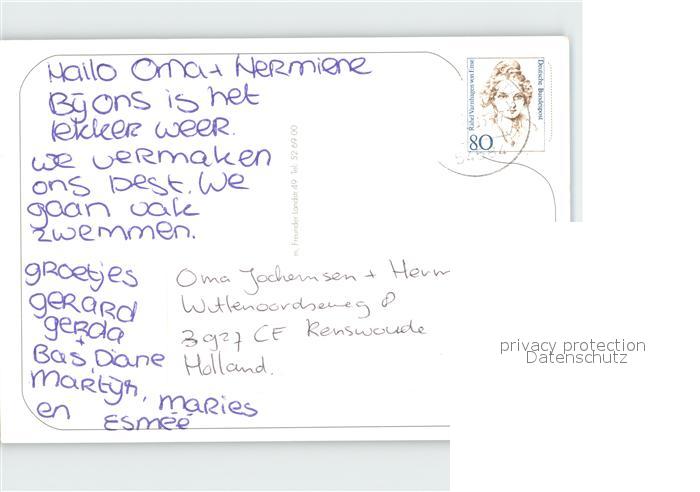 Hallo Oma + Hermiene
Bij ons is het
lekker weer.
We vermaken
ons best. We
gaan vaak
zwemmen.
groetjes
gerard
gerda
+
Bas, Diane
Martijn, Maries
en Esméé
Oma Jochemsen + Herm
8
3927 CE Renswoude
Holland.
Deutsche Bundespost
Rahel Varnhagen von Ense
80
Freunder Landstr. 49 Tel. 52 69 00
privacy protection
Datenschutz